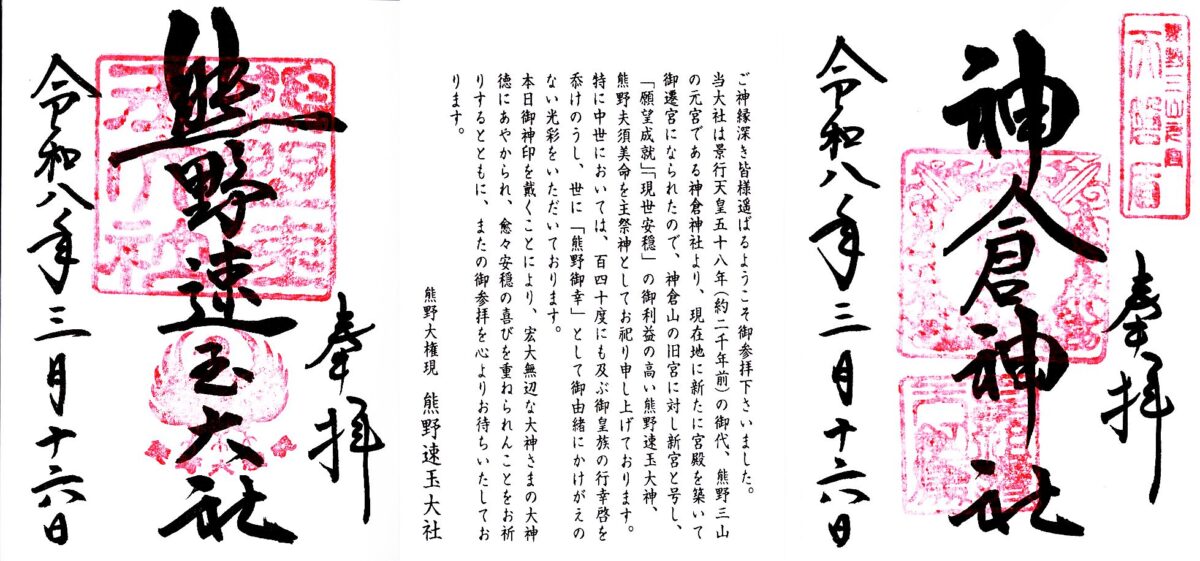 奉拝
神倉神社
令和八年三月十六日
ご神縁深き皆様遥ばるようこそ御参拝下さいました。
当大社は景行天皇五十八年(約二千年前)の御代、熊野三山
の元宮である神倉神社より、現在地に新たに宮殿を築いて
御遷宮になられたので、神倉山の旧宮に対し新宮と号し、
「願望成就」「現世安穏」の御利益の高い熊野速玉大神、
熊野夫須美命を主祭神としてお祀り申し上げております。
特に中世においては、百四十度にも及ぶ御皇族の行幸啓を
忝けのうし、世に「熊野御幸」として御由緒にかけがえの
ない光彩をいただいております。
本日御神印を戴くことにより、宏大無辺な大神さまの大神
徳にあやかられ、愈々安穏の喜びを重ねられんことをお祈
りするとともに、またの御参拝を心よりお待ちいたしてお
ります。
熊野大権現　熊野速玉大社
奉拝
熊野速玉大社
令和八年三月十六日